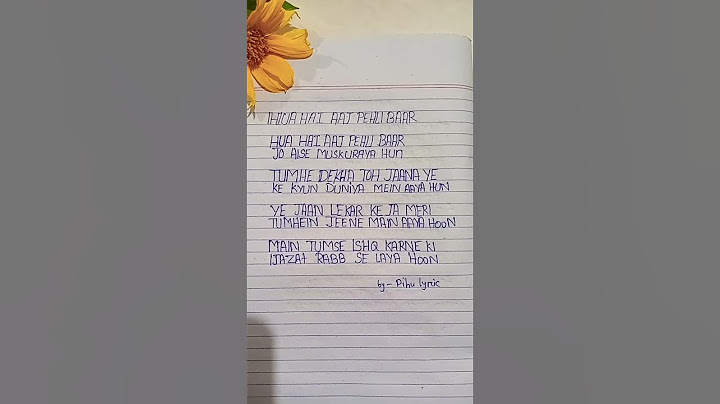 HUA HAI AAJ PEHLI BAAR
HUA HAI AAJ PEHLI BAAR
JO AISE MUSKURAYA HUN
TUMHE DEKHA TOH JAANA YE
KE KYUN DUNIYA MEIN AAYA HUN
YE JAAN LEKAR KE JA MERI
TUMHEIN JEENE MAIN AAYA HOON
MAIN TUMSE ISHQ KARNE KI
IJAZAT RABB SE LAYA HOON
by - Pihu lyric